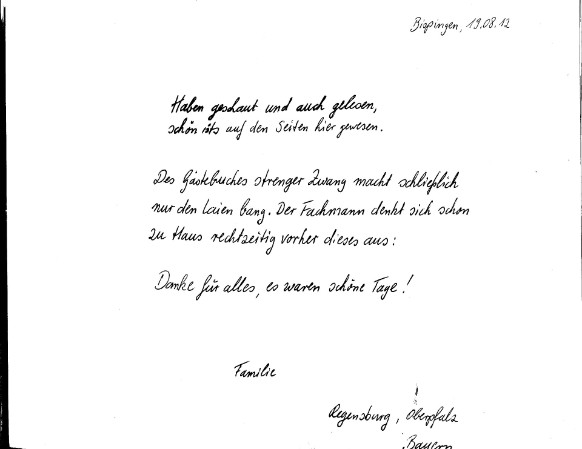 Bispingen, 19.08.12
Haben geschaut und auch gelesen,
schön ists auf den Seiten hier gewesen.
Des Gästebuches strenger Zwang macht schließlich
nur den Laien bang. Der Fachmann denkt sich schon
zu Haus rechtzeitig vorher dieses aus:
Danke für alles, es waren schöne Tage!
Familie
Regensburg, Oberpfalz
Bayern